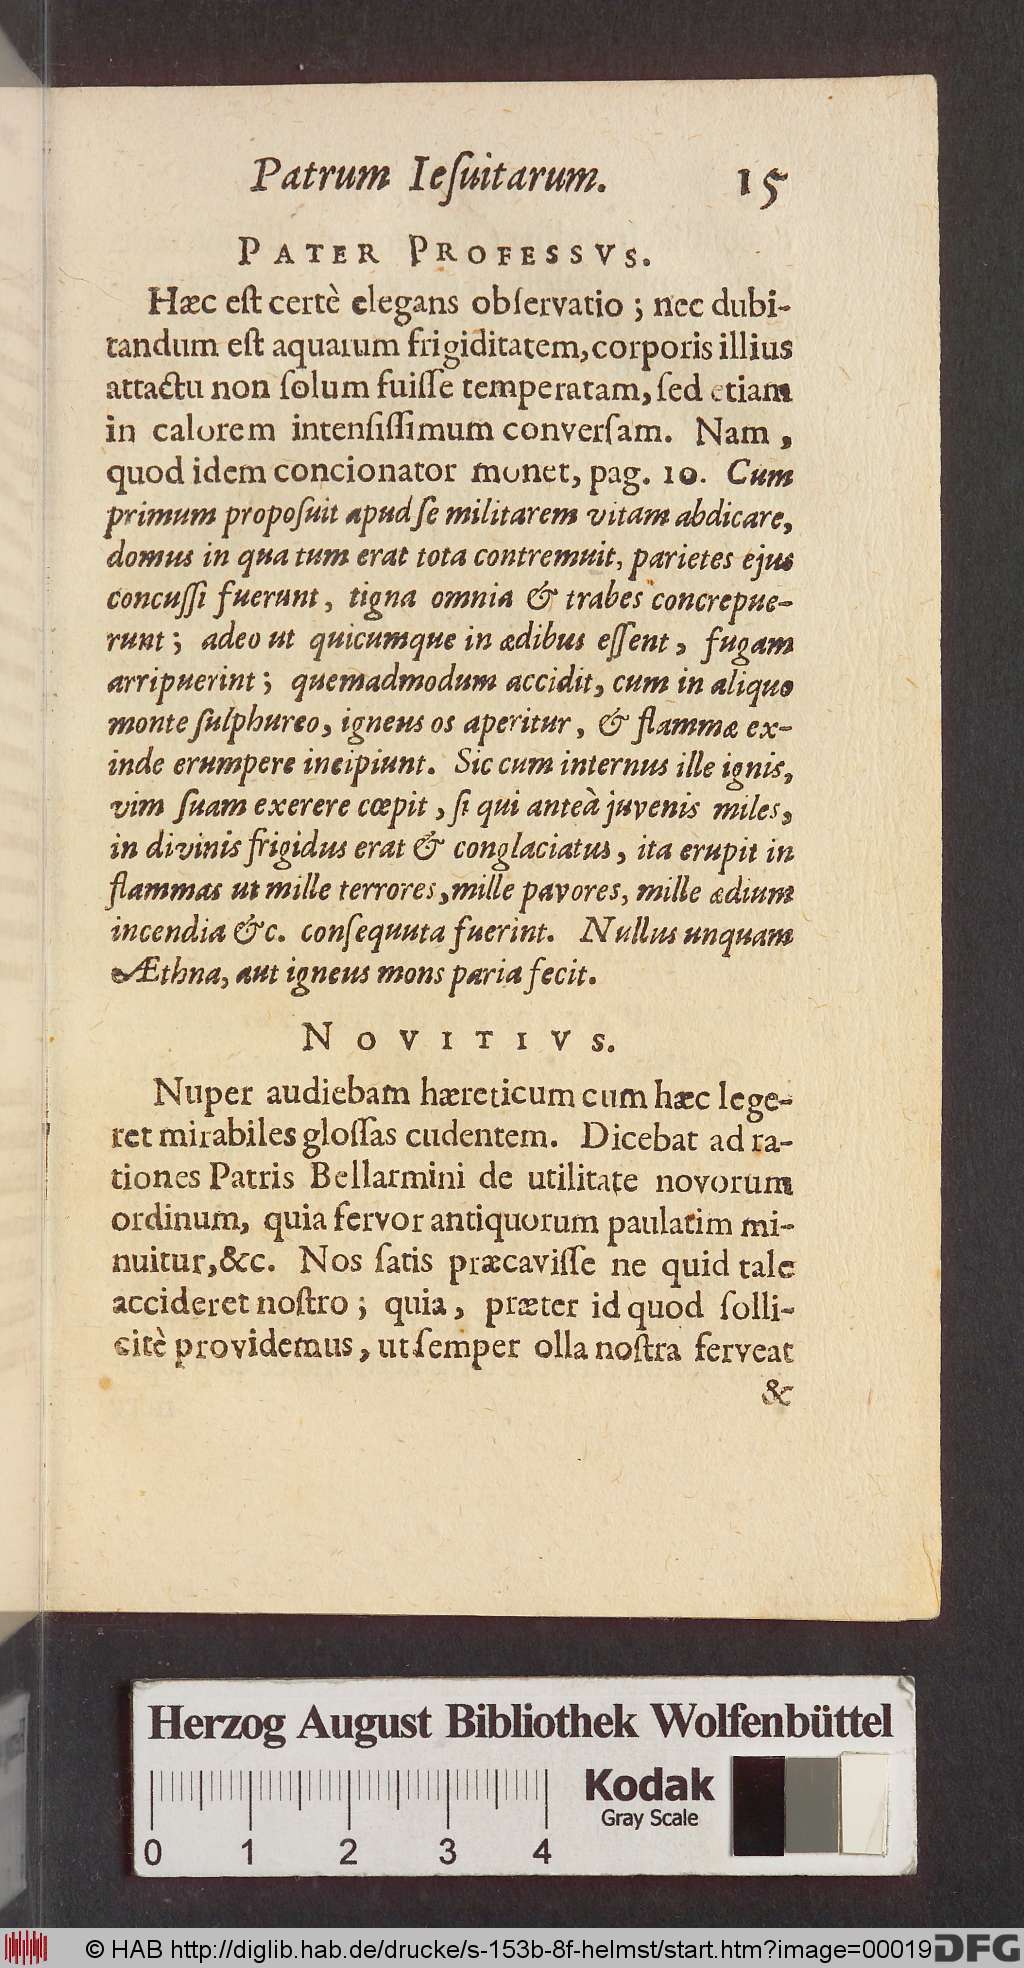 Patrum Ieſuitarum. 15
PATER PROFESSVS.
Hæc eſt certè elegans obſervatio; nec dubi-
tandum eſt aquarum frigiditatem, corporis illius
attactu non ſolum fuiſſe temperatam, ſed etiam
in calorem intenſiſſimum converſam. Nam,
quod idem concionator monet, pag. 10. Cum
primum propoſuit apud ſe militarem vitam abdicare,
domus in qua tum erat tota contremuit, parietes ejus
concuſſi fuerunt, tigna omnia & trabes concrepue-
runt; adeo ut quicumque in ædibus eſſent, fugam
arripuerint; quemadmodum accidit, cum in aliquo
monte ſulphureo, igneus os aperitur, & flammæ ex-
inde erumpere incipiunt. Sic cum internus ille ignis,
vim ſuam exerere cœpit, ſi qui anteà juvenis miles,
in divinis frigidus erat & conglaciatus, ita erupit in
flammas ut mille terrores, mille pavores, mille ædium
incendia &c. conſequuta fuerint. Nullus unquam
Æthna, aut igneus mons paria fecit.
NOVITIVS.
Nuper audiebam hæreticum cum hæc lege-
ret mirabiles gloſſas cudentem. Dicebat ad ra-
tiones Patris Bellarmini de utilitate novorum
ordinum, quia fervor antiquorum paulatim mi-
nuitur, &c. Nos ſatis præcaviſſe ne quid tale
accideret noſtro; quia, præter id quod ſolli-
citè providemus, ut ſemper olla noſtra ferveat
&
Herzog August Bibliothek Wolfenbüttel
Kodak
Gray Scale
0 1 2 3 4
© HAB http://diglib.hab.de/drucke/s-153b-8f-helmst/start.htm?image=00019
DFG